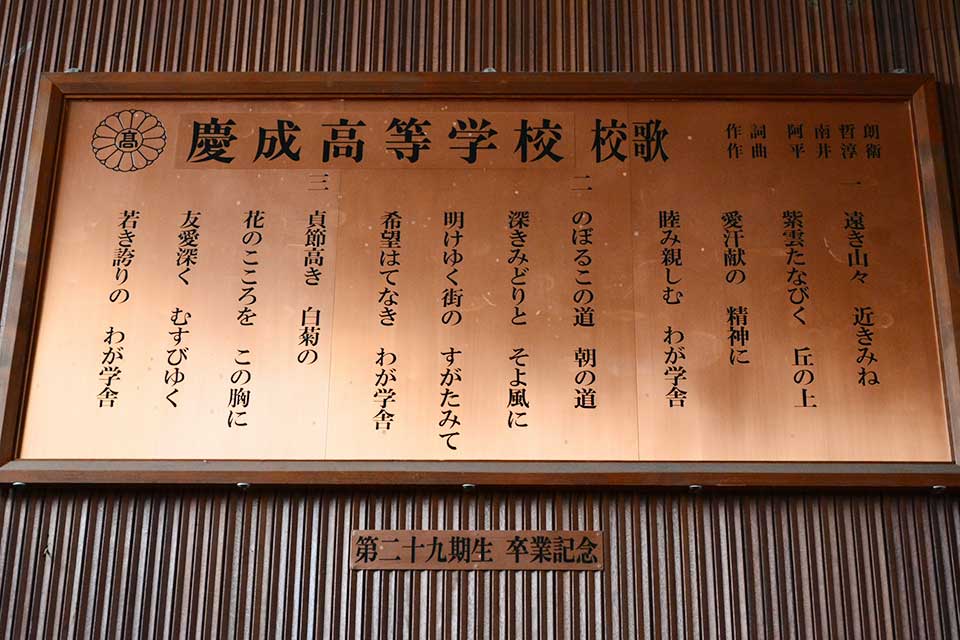 髙
慶成高等学校 校歌
作詞 阿南哲朗
作曲 平井淳衛
一
遠き山々 近きみね
紫雲たなびく 丘の上
愛汗献の 精神に
睦み親しむ わが学舎
二
のぼるこの道 朝の道
深きみどりと そよ風に
明けゆく街の すがたみて
希望はてなき わが学舎
三
貞節高き 白菊の
花のこころを この胸に
友愛深く むすびゆく
若き誇りの わが学舎
第二十九期生 卒業記念